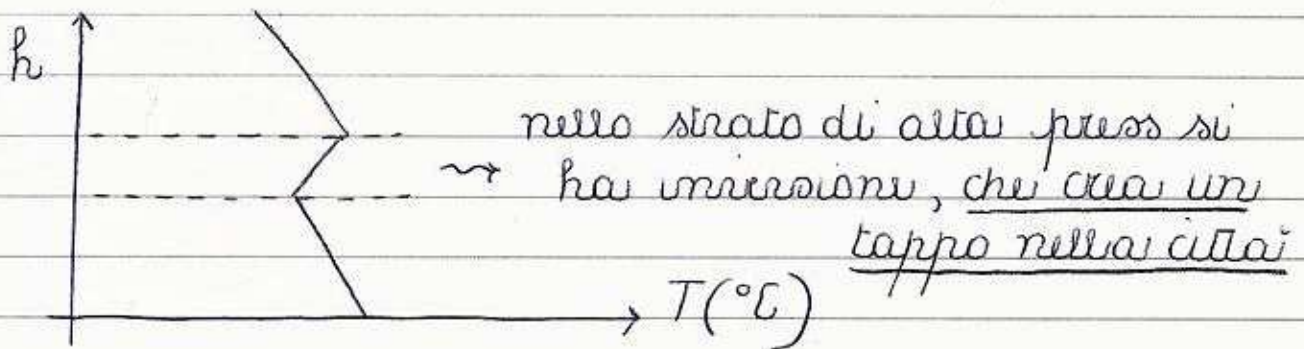 h
nello strato di alta press si
ha inversione, che crea un
tappo nella città
T(°C)